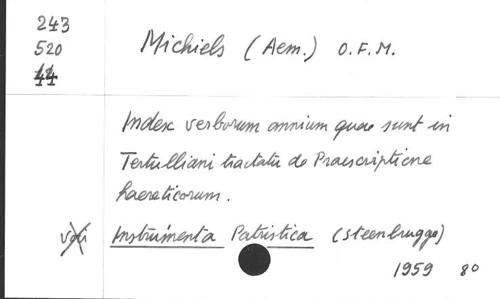 243
520
44
Michiels (Aem.) O.F.M.
Index verborum omnium quae sunt in
Tertulliani tractatu de Praescriptione
haereticorum.
voir Instrumenta Patristica (Steenbrugge)
1959 80